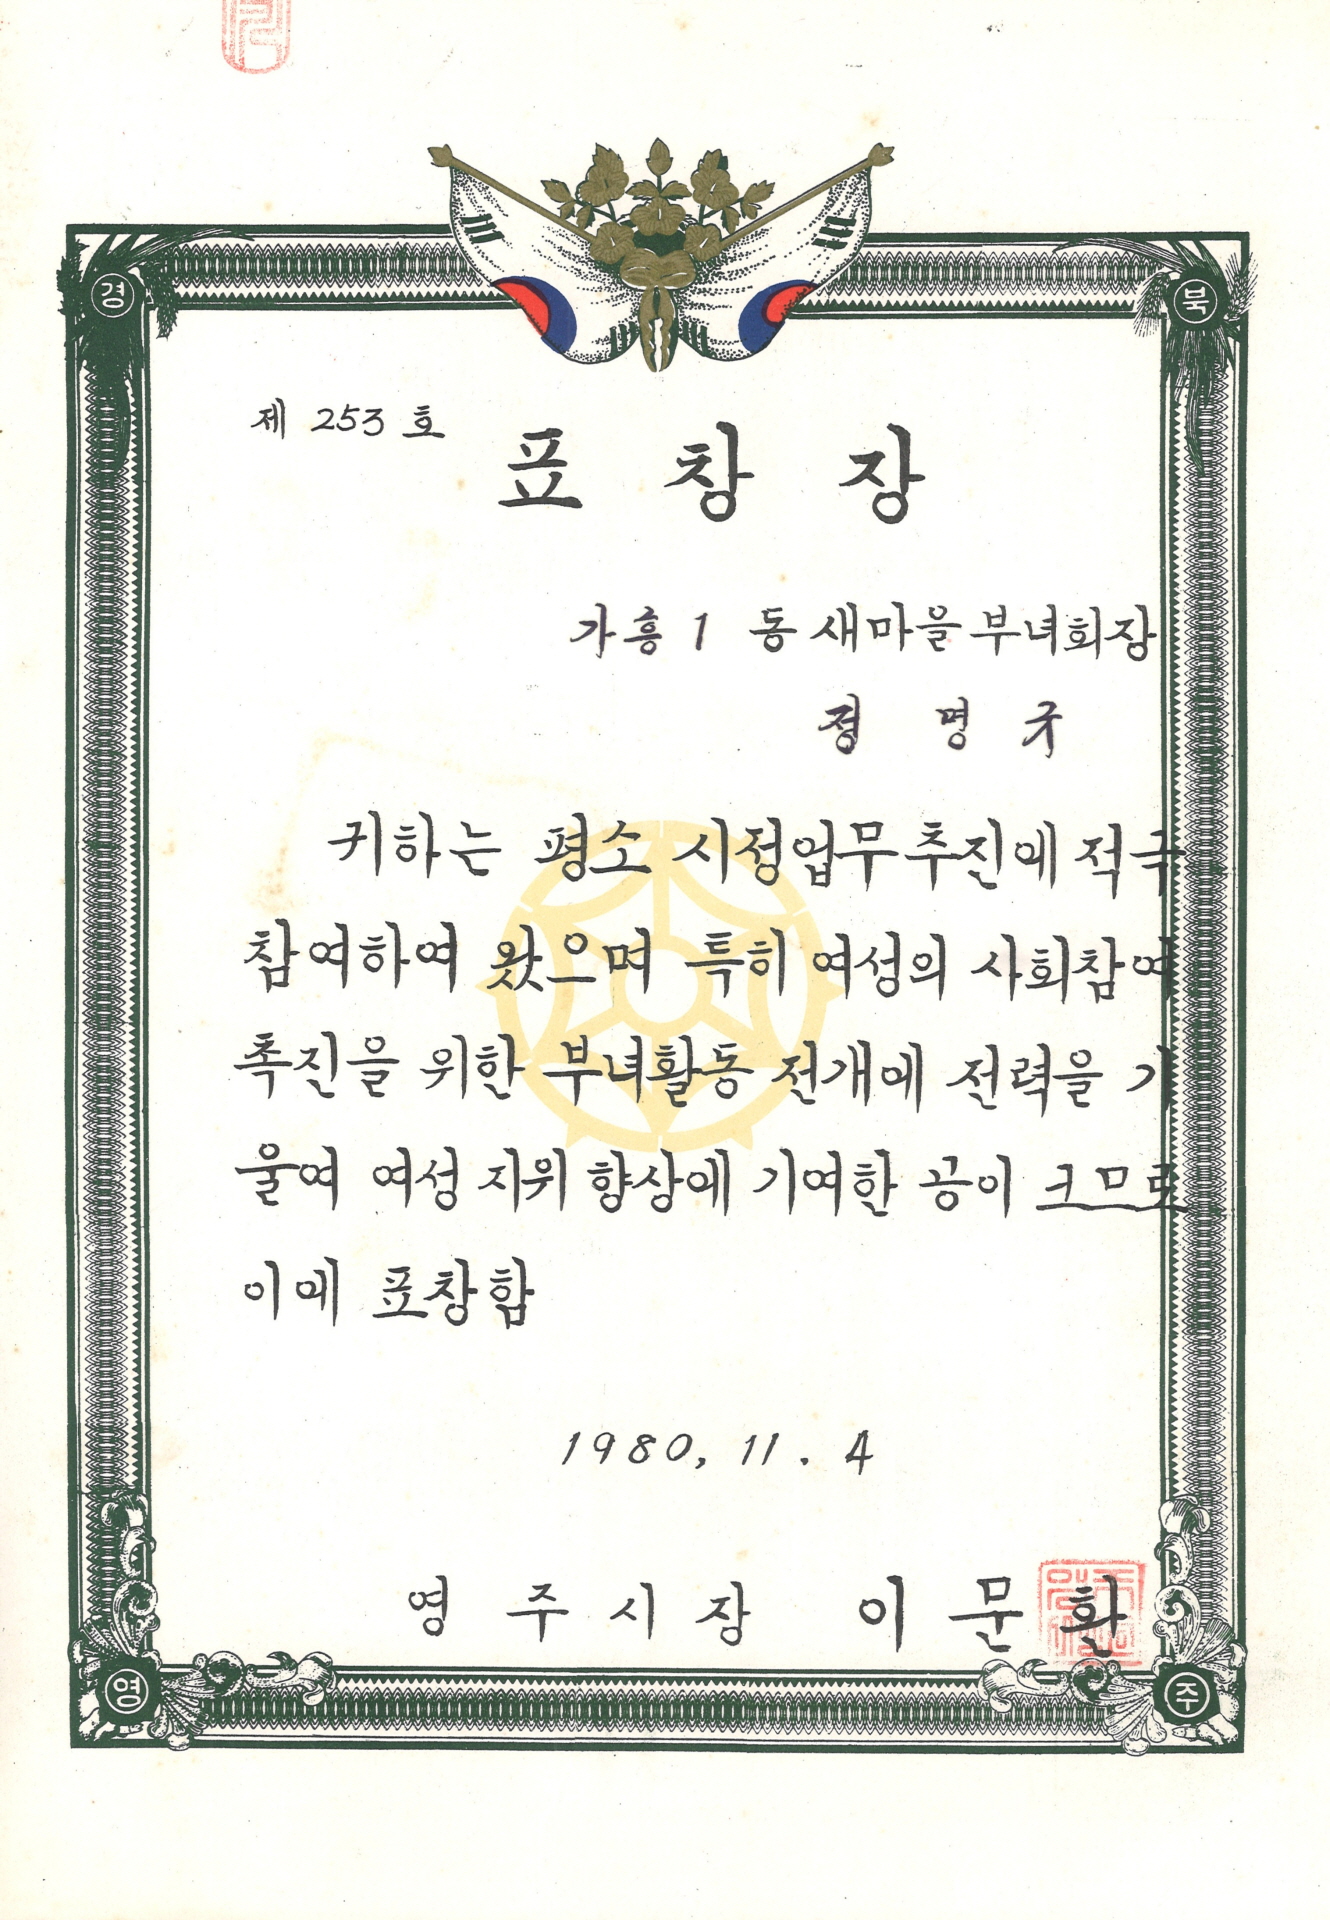 경 북
제 253 호
표 창 장
가흥 1 동 새마을부녀회장
정 명 구
귀하는 평소 시정업무추진에 적극
참여하여 왔으며 특히 여성의 사회참여
촉진을 위한 부녀활동 전개에 전력을 기
울여 여성 지위 향상에 기여한 공이 크므로
이에 표창함
1980. 11. 4
영 주 시 장 이 문 환
영 주